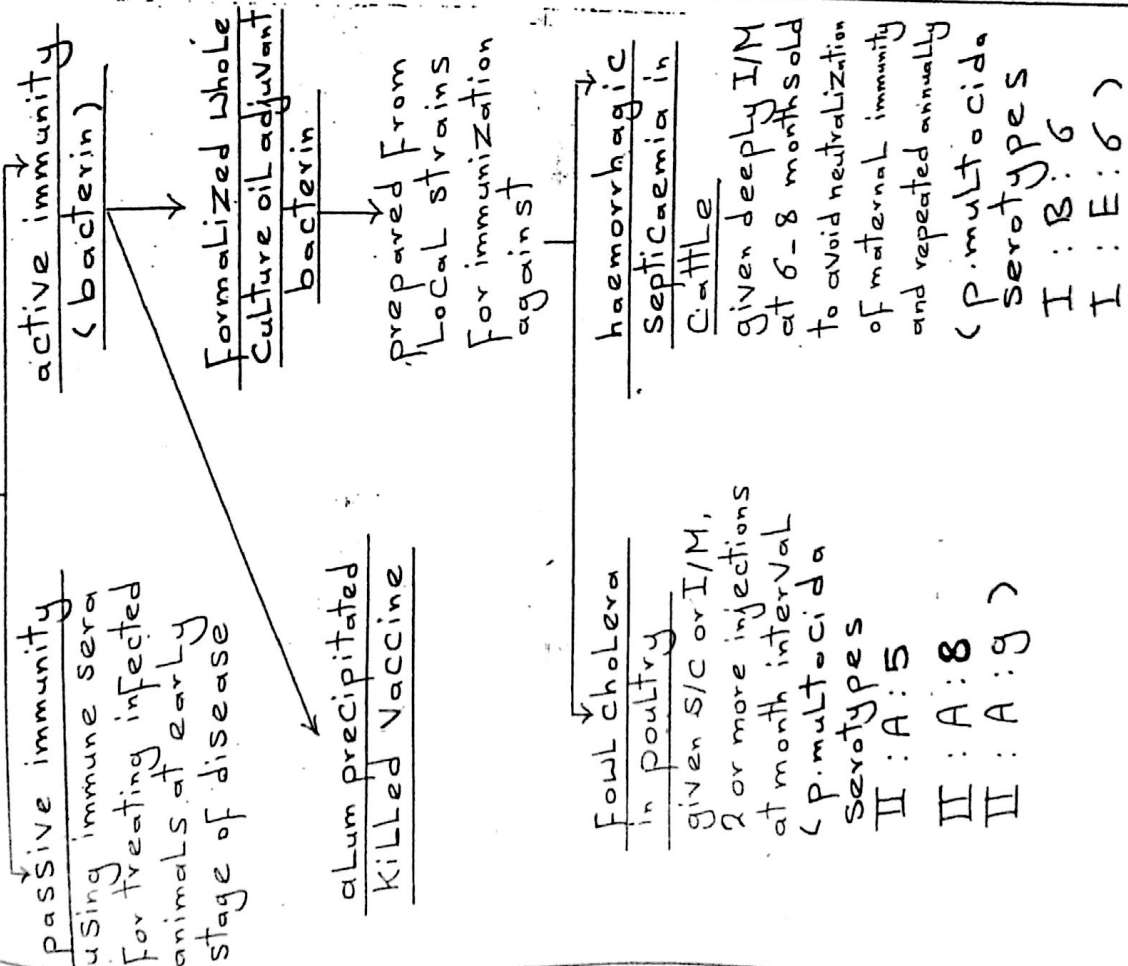 passive immunity
using immune sera
For treating infected
animals at early
stage of disease
active immunity
(bacterin)
aLum precipitated
KiLLed Vaccine
Formalized whole
Culture oiL adjuvant
bacterin
prepared From
Local strains
For immunization
against
FowL cholera
in poultry
given S/C or I/M,
2 or more injections
at month interval
(P.multocida
Serotypes
II : A : 5
II : A : 8
II : A : 9)
haemorrhagic
Septicaemia in
CattLe
given deeply I/M
at 6_8 months old
to avoid neutralization
of maternal immunity
and repeated annually
(P.multocida
Serotypes
I : B : 6
I : E : 6)